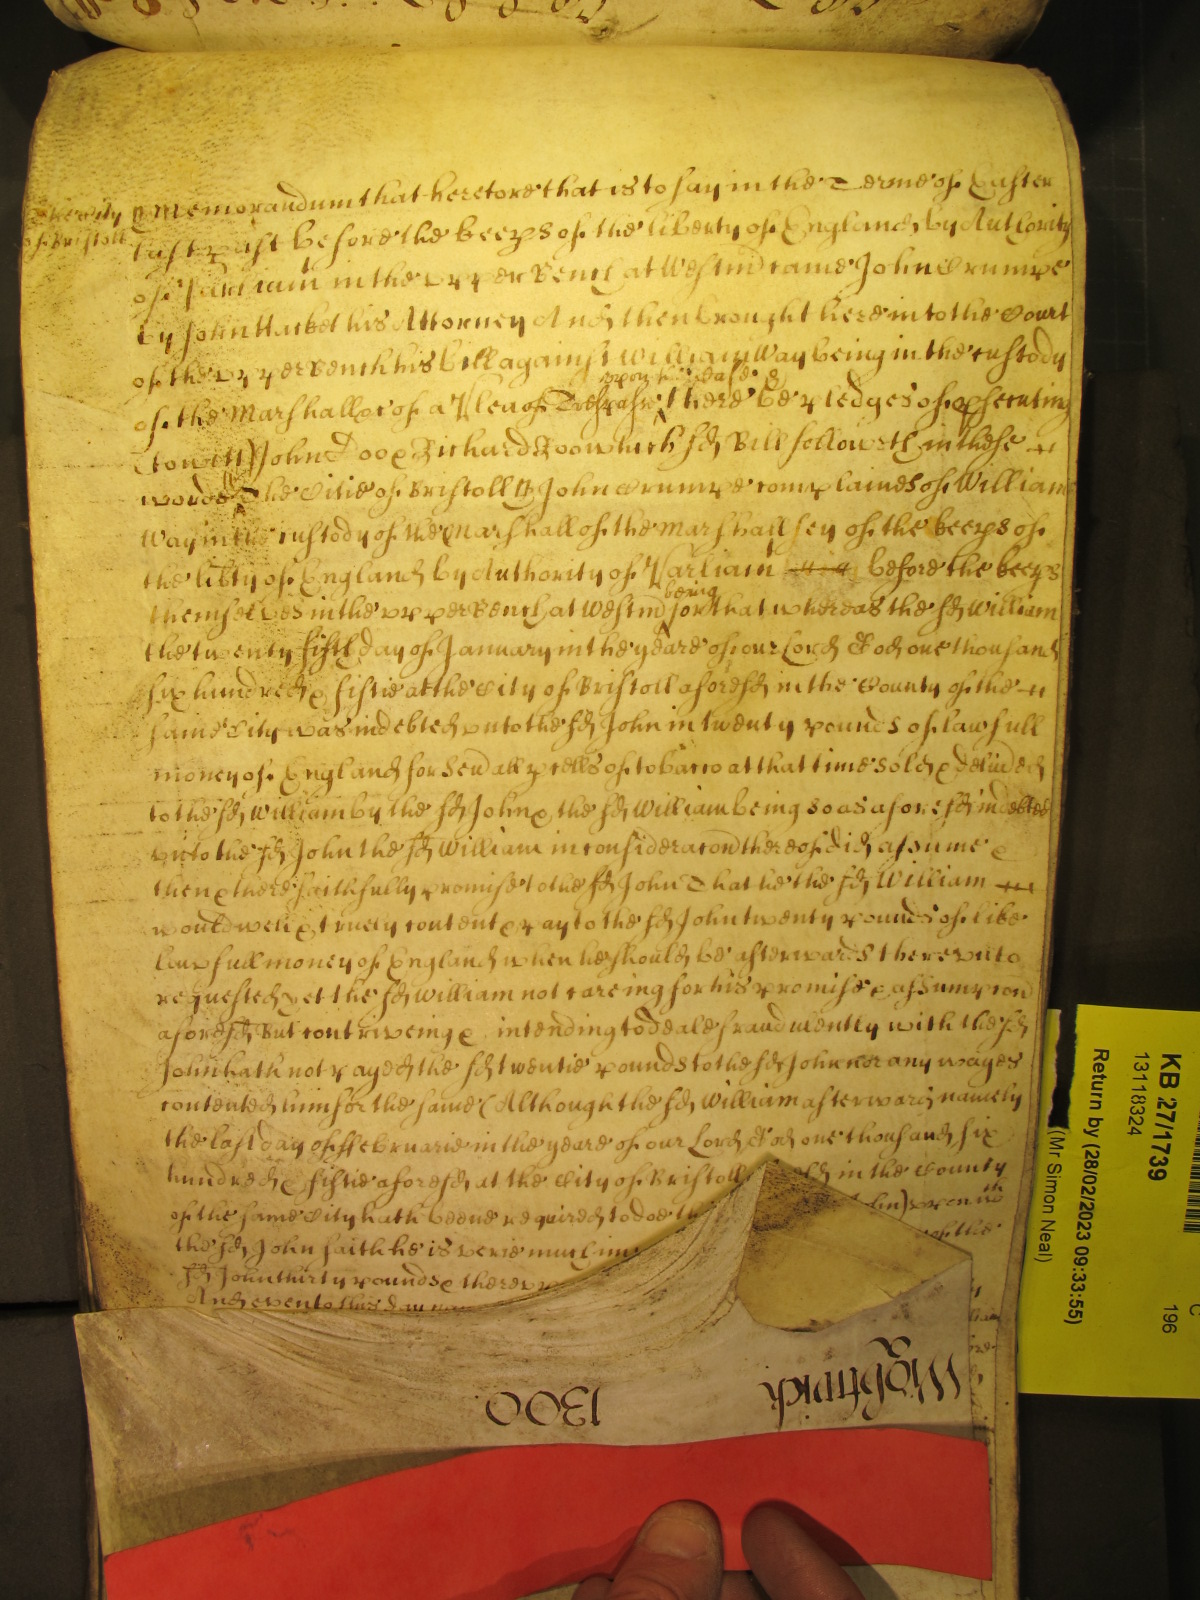 The City
of Bristoll
Memorandum that heretofore that is to say in the Terme of Easter
last past before the keeps of the liberty of England by Authority
of Parliam in the upper Bench at Westm came John Crumpe
by John Hacket his Attorney And then brought here into the Court
of the upper Bench his bill against William Way being in the custody
upon the Case &
of the Marshall &c of a Plea of Trespas there be pledges of psecuting
(to witt) John Doo & Richard Roo which sd Bill followeth in these
words The Citie of Bristoll ss John Crumpe complaines of William
Way in the custody of the Marshall of the Marshallsey of the keeps of
the libty of England by Authority of Parliam before the keeps
being
themselves in the upper Bench at Westm for that whereas the sd William
the twenty fifth day of January in the yeare of our Lord God one thousand
six hundred & fiftie at the City of Bristoll aforesd in the County of the
same City was indebted unto the sd John in twenty pounds of lawfull
money of England for seuall pcells of tobacco at that time sold & deliued
to the sd William by the sd John & the sd William being so as aforesd indebted
unto the sd John the sd William in consideracon thereof did assume &
then & there faithfully promise to the sd John That he the sd William
would well & truely content & pay to the sd John twenty pounds of like
lawfull money of England when he should be afterwards thereunto
requested yet the sd William not careing for his promise & assumpcon
aforesd But contriveing & intending to deale fraudulently with the sd
John hath not payed the sd twentie pounds to the sd John nor any wayes
contented him for the same (Although the sd William afterward namely
the last day of ffebruarie in the yeare of our Lord God one thousand six
hundred & fiftie aforesd at the City of Bristoll in the County
of the same City hath beene required to doe
the sd John saith he is
of the
sd John thirty pounds & thereup
And
Wightwick
1300
KB 27/1739
13118324
Return by (28/02/2023 09:33:55)
(Mr Simon Neal)
C
196